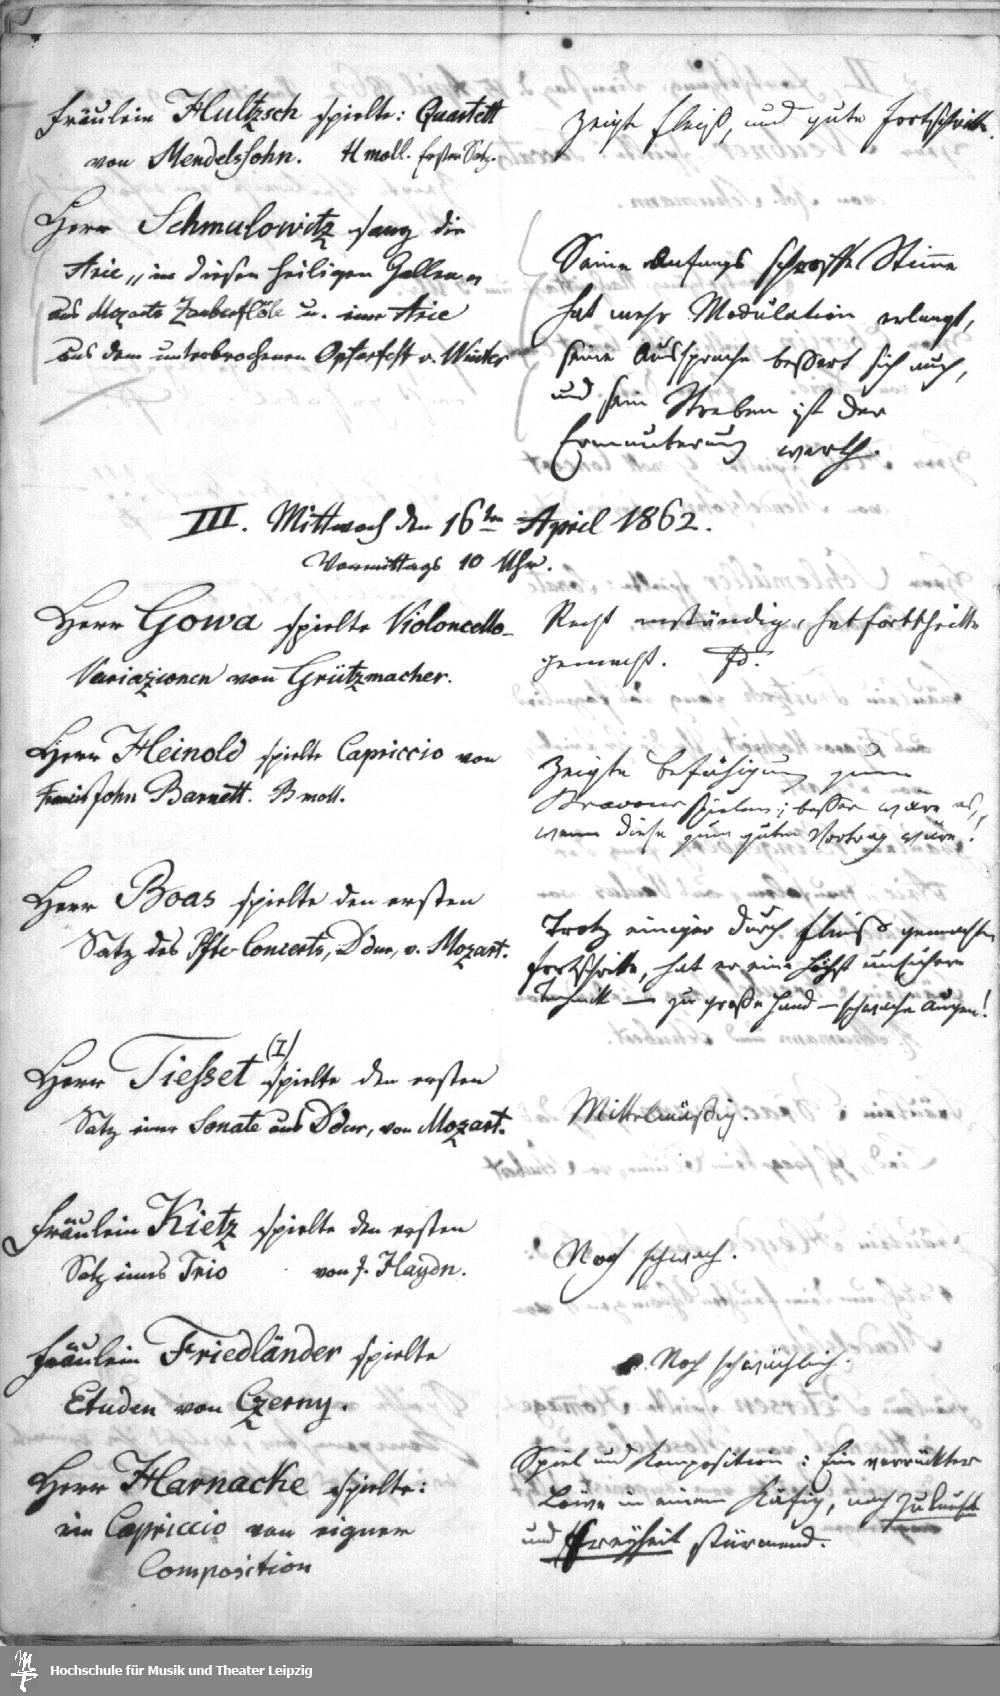 Fräulein Hultzsch spielte: Quartett
von Mendelssohn. H moll. Erster Satz.
zeigte Fleiß, und gute Fortschritte.
Herr Schmulowitz sang die
Arie „in diesen heiligen Hallen„
aus Mozarts Zauberflöte u. eine Arie
aus dem unterbrochenen Opferfest v. Winter
Seine Anfangs schroffe Stimme
hat mehr Modulation erlangt,
seine Aussprache bessert sich auch,
und sein Streben ist der
Ermunterung werth.
III. Mittwoch den 16ten April 1862.
Vormittags 10 Uhr.
Herr Gowa spielte Violoncello-
Variazionen von Grützmacher.
Recht anständig, hat Fortschritte
gemacht.
Herr Heinold spielte Capriccio von
Francis John Barnett. B moll.
Zeigte Befähigung zum
Bravour spielen; besser wäre es,
wenn diese zum guten Vortrag wäre!
Herr Boas spielte den ersten
Satz des Pfte-Concerts, D dur, v. Mozart.
Trotz einiger durch Fleiß gemachten
Fortschritte, hat er eine höchst unsichere
Technik — zu große Hand — schwache Augen!
Herr Tiesset (I) spielte den ersten
Satz einer Sonate aus D dur, von Mozart.
Mittelmäßig.
Fräulein Kietz spielte den ersten
Satz eines Trio von J. Haydn.
Noch schwach.
Fräulein Friedländer spielte
Etuden von Czerny.
Noch schwächlich.
Herr Harnacke spielte:
ein Capriccio von eigner
Composition
Spiel und Komposition: Ein verrückter
Löwe in einem Käfig, nach Zukunft
und Freyheit stürmend.
Hochschule für Musik und Theater Leipzig